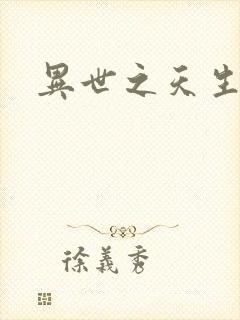 異世之天生
徐義秀